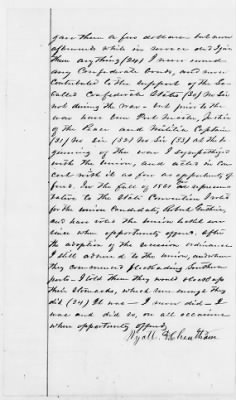 gave them a few dollars but never
afterwards while in service did I give
them anything (24) I never owned
any Confederate bonds, and never
contributed to the support of the So-
Called Confederate States (30) No Sir
not during the war - but prior to the
war have been Post Master, Justice
of the Peace and Militia Captain
(31) No Sir (32) No Sir (33) At the be-
ginning of the war I sympathized
with the Union, and acted in con-
cert with it as far as opportunity of-
fered. In the fall of 1861 as represen-
tative to the State Convention I voted
for the Union Candidate, Robert
and have voted the Union ticket ever
since when opportunity offered. After
the adoption of the secession ordinance
I still adhered to the Union, and when
they commenced blockading Southern
ports - I told them they would block up
their stomachs, which sure enough they
did (34) It was - I never did - I
was and did so, on all occasions
when opportunity offered,
Wyatt Cheatham